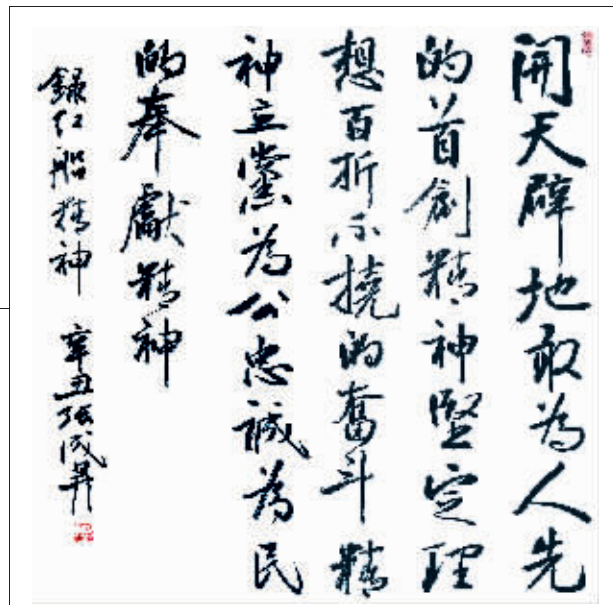 開天辟地敢為人先
的首創精神堅定理
想百折不撓的奮斗精
神立黨為公忠誠為民
的奉獻精神
錄红船精神 辛丑張成